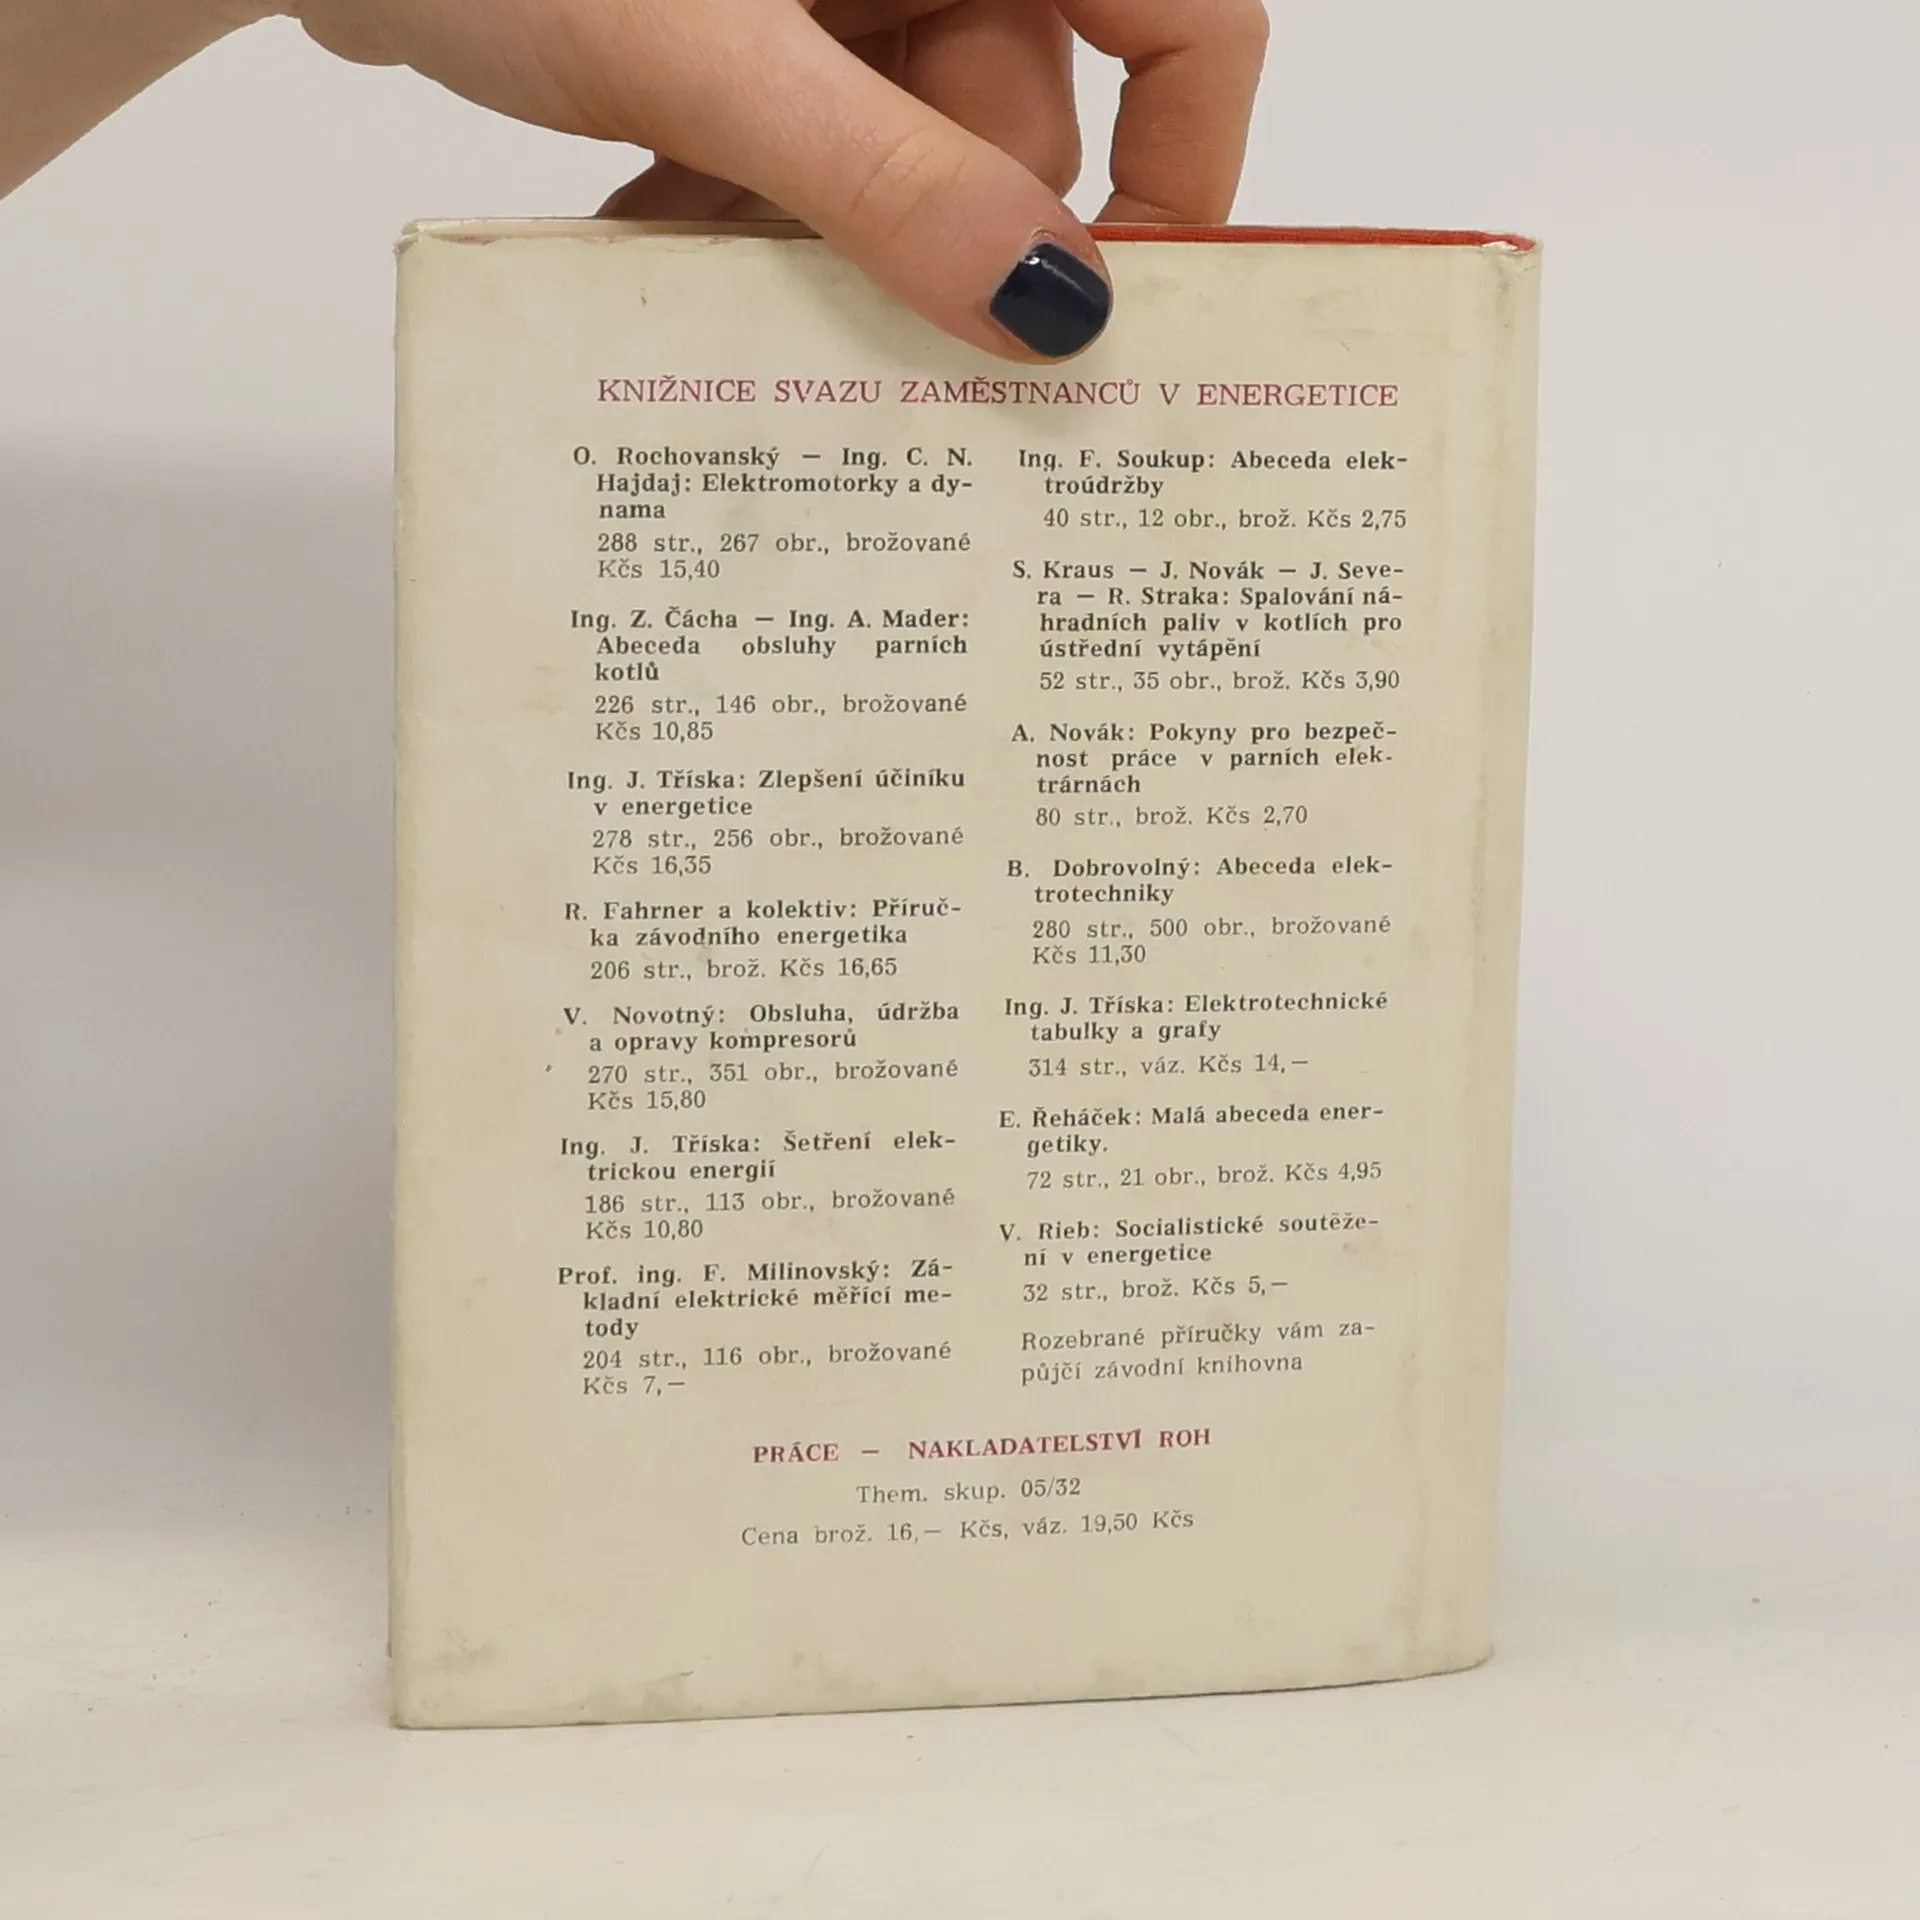 KNIŽNICE SVAZU ZAMĚSTNANCŮ V ENERGETICE
O. Rochovanský — Ing. C. N.
Hajdaj: Elektromotorky a dy-
nama
288 str., 267 obr., brožované
Kčs 15,40
Ing. Z. Čácha — Ing. A. Mader:
Abeceda obsluhy parních
kotlů
226 str., 146 obr., brožované
Kčs 10,85
Ing. J. Tříska: Zlepšení účiníku
v energetice
278 str., 256 obr., brožované
Kčs 16,35
R. Fahrner a kolektiv: Příruč-
ka závodního energetika
206 str., brož. Kčs 16,65
V. Novotný: Obsluha, údržba
a opravy kompresorů
270 str., 351 obr., brožované
Kčs 15,80
Ing. J. Tříska: Šetření elek-
trickou energií
186 str., 113 obr., brožované
Kčs 10,80
Prof. ing. F. Milinovský: Zá-
kladní elektrické měřící me-
tody
204 str., 116 obr., brožované
Kčs 7,—
Ing. F. Soukup: Abeceda elek-
troúdržby
40 str., 12 obr., brož. Kčs 2,75
S. Kraus — J. Novák — J. Seve-
ra — R. Straka: Spalování ná-
hradních paliv v kotlích pro
ústřední vytápění
52 str., 35 obr., brož. Kčs 3,90
A. Novák: Pokyny pro bezpeč-
nost práce v parních elek-
trárnách
80 str., brož. Kčs 2,70
B. Dobrovolný: Abeceda elek-
trotechniky
280 str., 500 obr., brožované
Kčs 11,30
Ing. J. Tříska: Elektrotechnické
tabulky a grafy
314 str., váz. Kčs 14,—
E. Řeháček: Malá abeceda ener-
getiky.
72 str., 21 obr., brož. Kčs 4,95
V. Rieb: Socialistické soutěže-
ní v energetice
32 str., brož. Kčs 5,—
Rozebrané příručky vám za-
půjčí závodní knihovna
PRÁCE — NAKLADATELSTVÍ ROH
Them. skup. 05/32
Cena brož. 16,— Kčs, váz. 19,50 Kčs